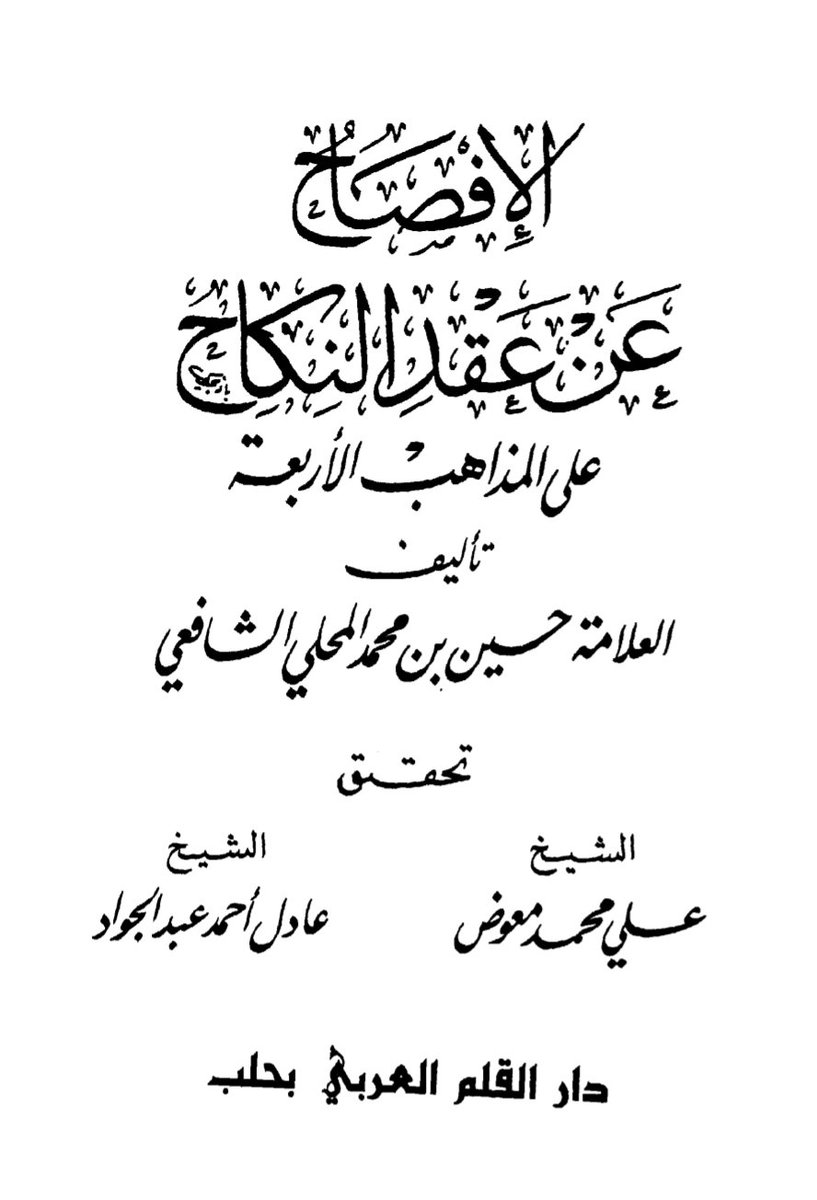 الإِفْصَاحُ
عَنْ عَقْدِ النِّكَاحِ
على المذاهب الأربعة
تأليف
العلامة حسين بن محمد المحلي الشافعي
تحقيق
الشيخ
علي محمد معوض
الشيخ
عادل أحمد عبد الجواد
دار القلم العربي بحلب